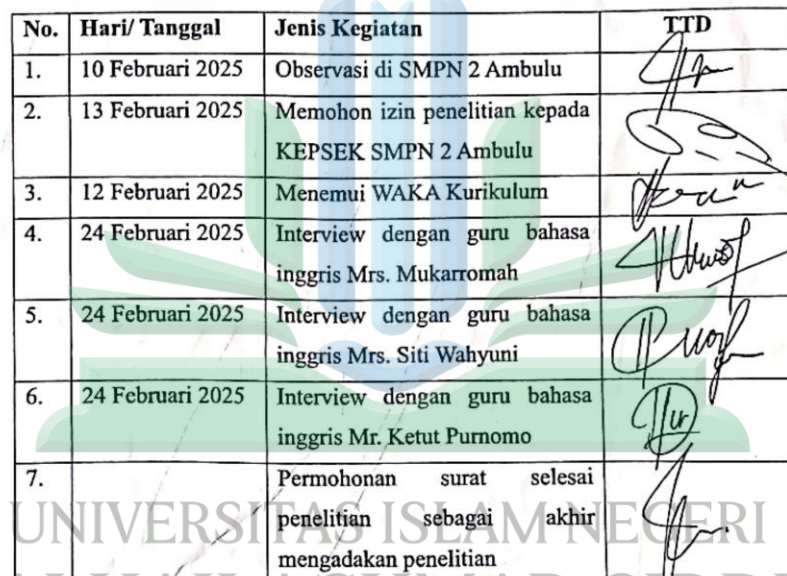 No. Hari/ Tanggal Jenis Kegiatan TTD
1. 10 Februari 2025 Observasi di SMPN 2 Ambulu
2. 13 Februari 2025 Memohon izin penelitian kepada
KEPSEK SMPN 2 Ambulu
3. 12 Februari 2025 Menemui WAKA Kurikulum
4. 24 Februari 2025 Interview dengan guru bahasa
inggris Mrs. Mukarromah
5. 24 Februari 2025 Interview dengan guru bahasa
inggris Mrs. Siti Wahyuni
6. 24 Februari 2025 Interview dengan guru bahasa
inggris Mr. Ketut Purnomo
7. Permohonan surat selesai
penelitian sebagai akhir
mengadakan penelitian
UNIVERSITAS ISLAM NEGERI